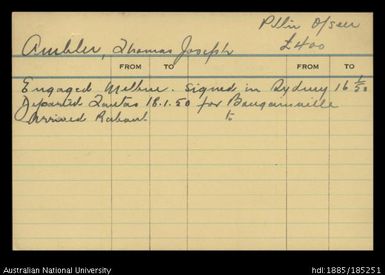 Pltn O/seer
Ambler, Thomas Joseph £400
FROM TO FROM TO
Engaged, Melbne. Signed in Sydney 16 1/50
Departed Qantas 18.1.50 for Bougainville
Arrived Rabaul to
Australian National University
hdl:1885/185251